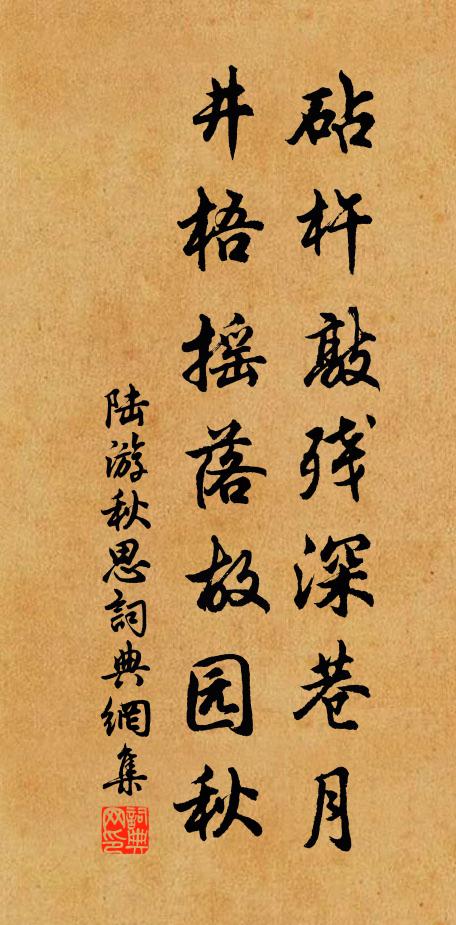 砧杵敲残深巷月
井梧摇落故园秋
陆游秋思詞典網集
詞典网印